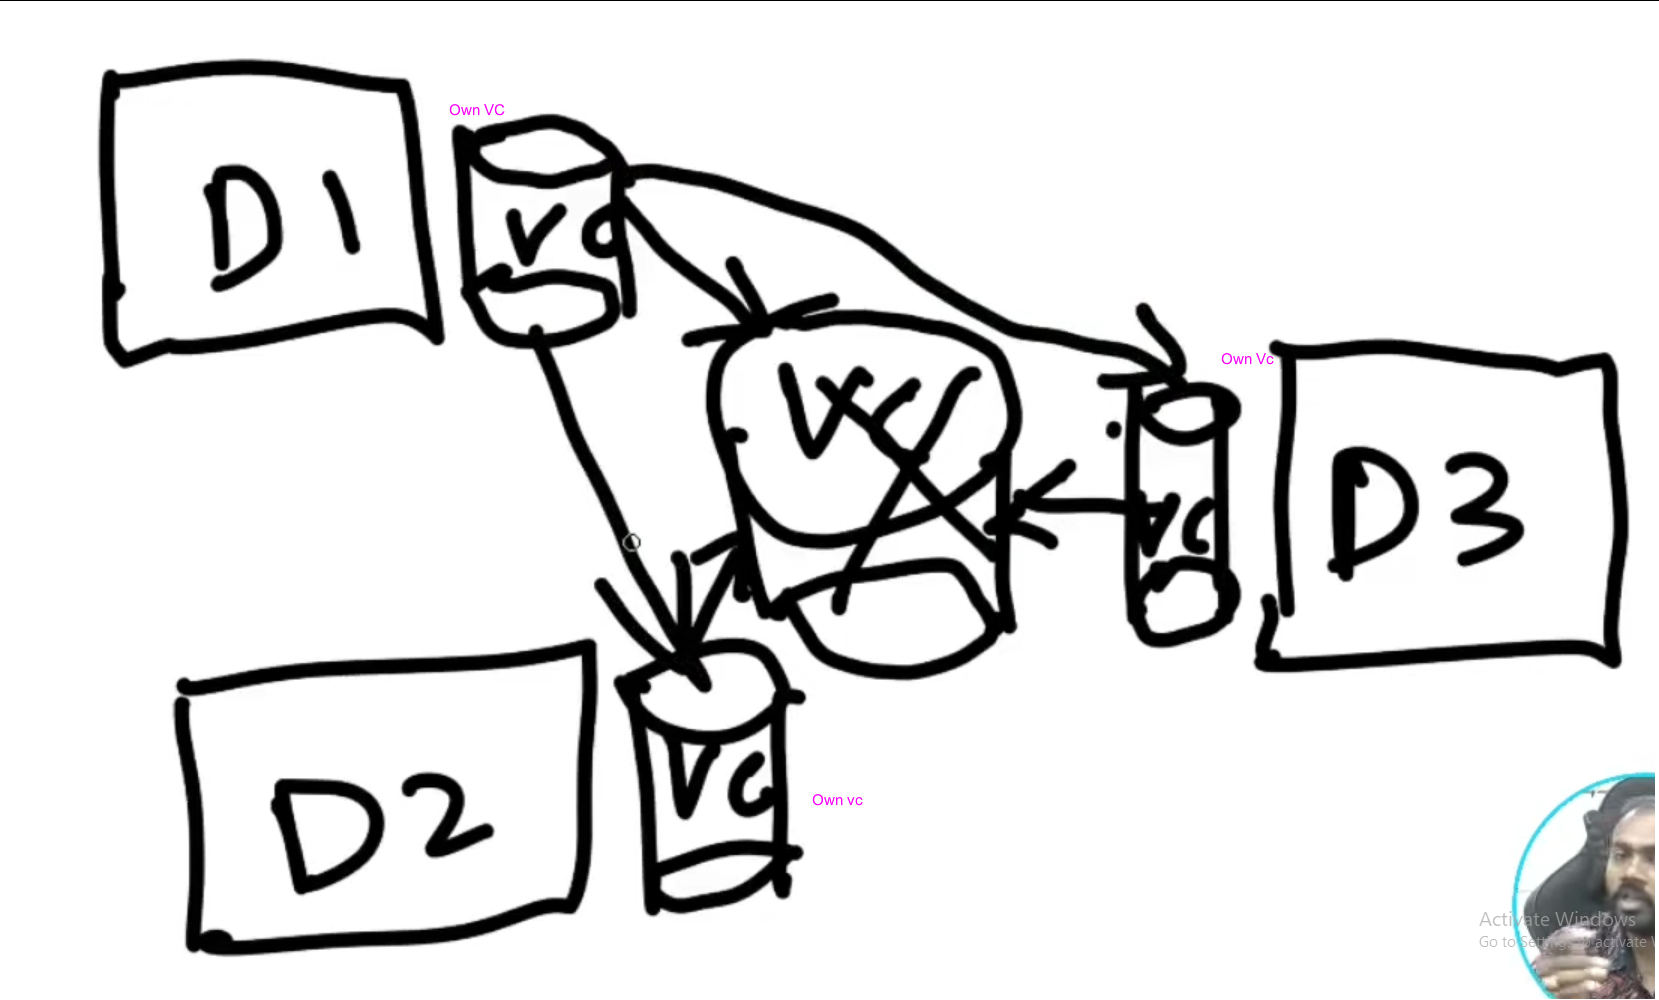 Own VC
D1
VC
VC
Own Vc
D3
VC
D2
VC
Own vc
Activate Windows
Go to Settings to activate W